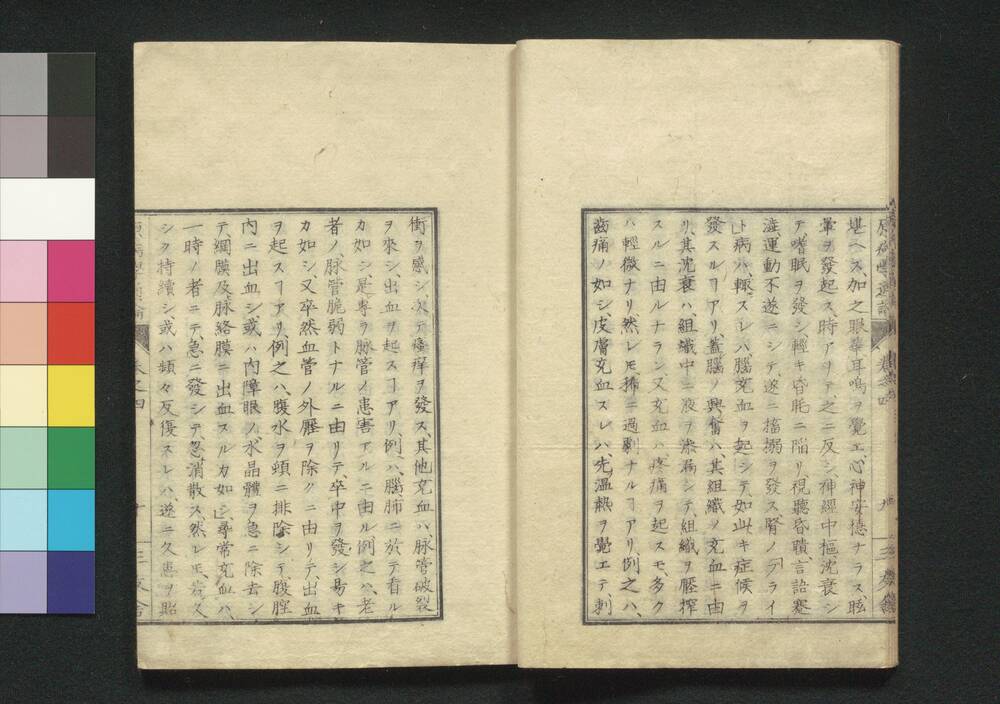 堪ヘス、加之眼華耳鳴ヲ覺エ心神安穏ナラス、眩
暈ヲ發起ス、時アリテ、之ニ反シ神經中樞、沈衰シ
テ、嗜眠ヲ發シ、輕キ昏眊ニ陥リ、視聽昏聵、言語蹇
澁、運動不遂ニシテ、遂ニ搐搦ヲ發ス、腎ノ「ブライ
ト」病ハ、輙スレハ、腦充血ヲ起シテ、如此キ症候ヲ
發スルヿアリ、蓋腦ノ興奮ハ、其組織ノ充血ニ由
リ、其沈衰ハ、組織中ニ液ヲ滲漏シテ、組織ヲ壓搾
スルニ由ルナラン、又充血ハ疼痛ヲ起スモ、多ク
ハ輕微ナリ、然レ𪜈稀ニ過劇ナルヿアリ、例之ハ、
齒痛ノ如シ、皮膚充血スレハ、先温熱ヲ覺エテ、刺
衝ヲ感シ、次テ瘙痒ヲ發ス、其他充血ハ、脈管破裂
ヲ來シ、出血ヲ起スヿアリ、例ハ、腦肺ニ於テ看ル
カ如シ、是專ラ脈管ノ患害アルニ由ル、例之ハ、老
者ノ脈管脆弱トナルニ由リテ卒中ヲ發シ易キ
カ如シ、又卒然血管ノ外壓ヲ除クニ由リテ、出血
ヲ起スヿアリ、例之ハ、腹水ヲ頓ニ排除シテ、腹腔
内ニ出血シ、或ハ内障眼ノ水晶體ヲ急ニ除去シ
テ、網膜及脉絡膜ニ出血スルカ如シ、尋常充血ハ、
一時ノ者ニテ、急ニ發シテ、忽消散ス、然レ𪜈、若久
シク持續シ、或ハ頻々反復スレハ、遂ニ久患ヲ貽
卷之四
十
三友舎